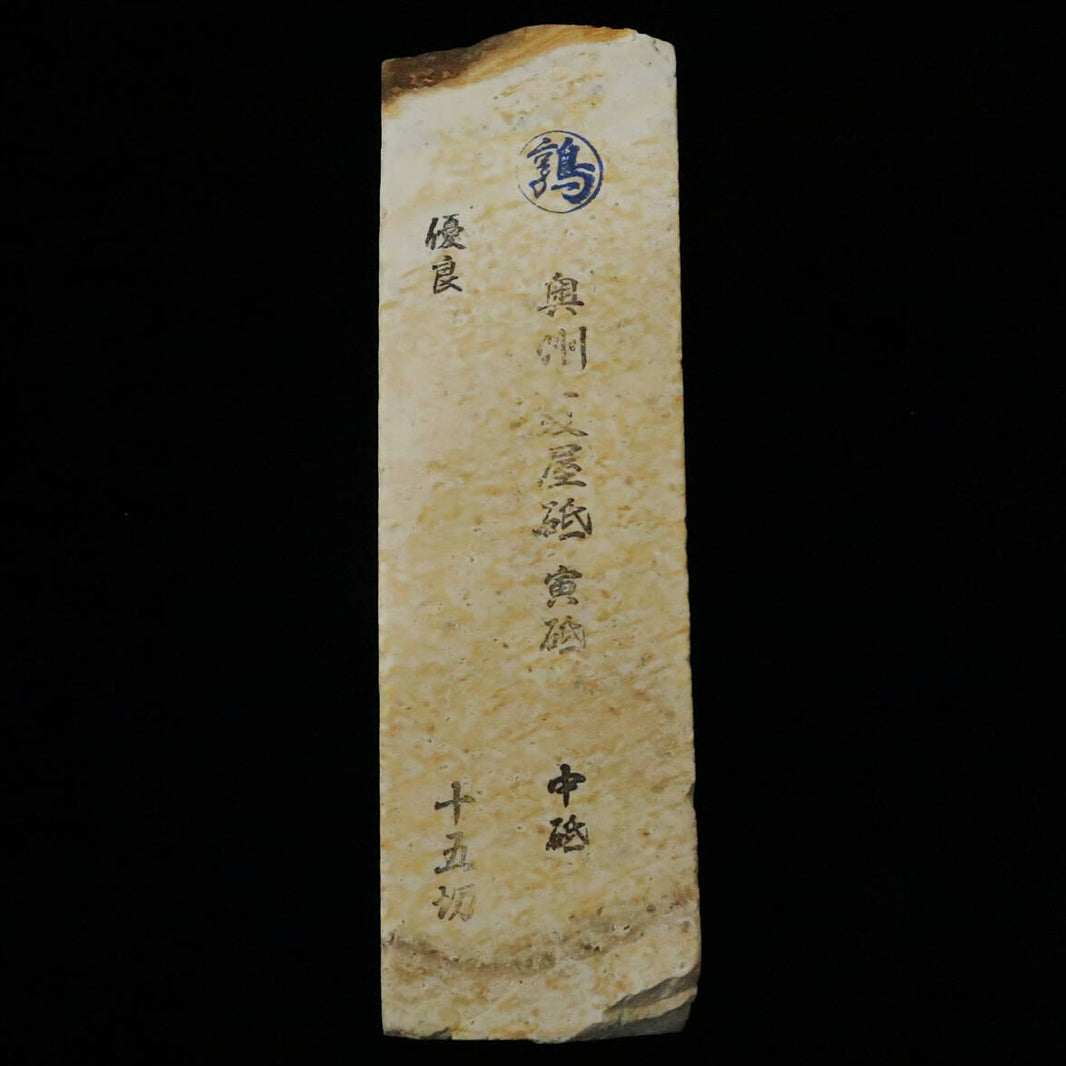 鶉
奥州夏屋砥 寅砥 中砥
優良 十五切